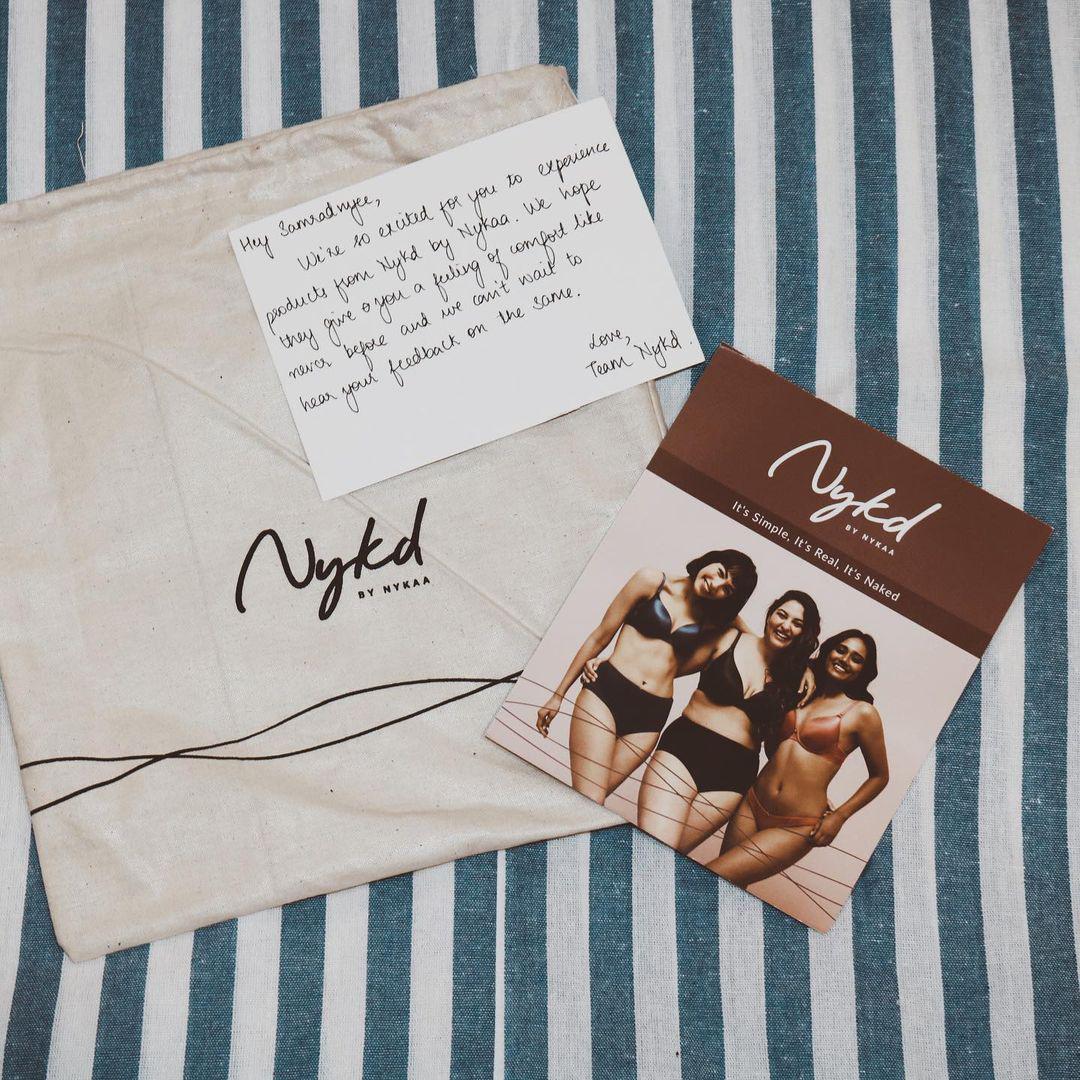 Hey Samradnyee,
We're so excited for you to experience
products from Nykd by Nykaa. We hope
they give you a feeling of comfort like
never before and we can't wait to
hear your feedback on the same.
Love,
Team Nykd
Nykd
BY NYKAA
Nykd
BY NYKAA
It's Simple, It's Real, It's Naked